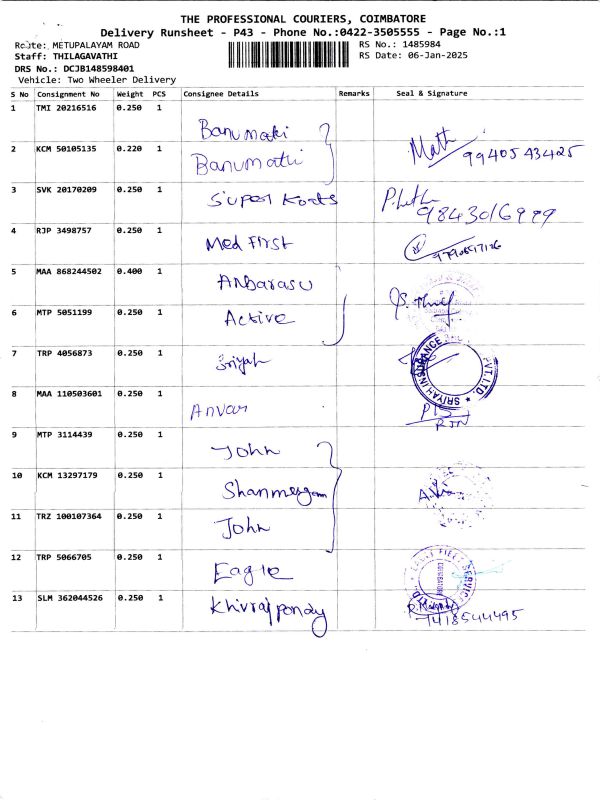 THE PROFESSIONAL COURIERS, COIMBATORE
Delivery Runsheet - P43 - Phone No.:0422-3505555 - Page No.:1
Route: METUPALAYAM ROAD RS No.: 1485984
Staff: THILAGAVATHI RS Date: 06-Jan-2025
DRS No.: DCJB148598401
Vehicle: Two Wheeler Delivery
S No Consignment No Weight PCS Consignee Details Remarks Seal & Signature
1 TMI 20216516 0.250 1 Banumathi
2 KCM 50105135 0.220 1 Banumathi Math 9940543425
3 SVK 20170209 0.250 1 Super Koats 9843016999
4 RJP 3498757 0.250 1 Med First
5 MAA 868244502 0.400 1 Anbarasu
6 MTP 5051199 0.250 1 Active
7 TRP 4056873 0.250 1 Sriyah SRIYAH INSURANCE PVT. LTD.
8 MAA 110503601 0.250 1 Anvar
9 MTP 3114439 0.250 1 John
10 KCM 13297179 0.250 1 Shanmugam
11 TRZ 100107364 0.250 1 John
12 TRP 5066705 0.250 1 Eagle
13 SLM 362044526 0.250 1 Khivraj pondy 7418544495